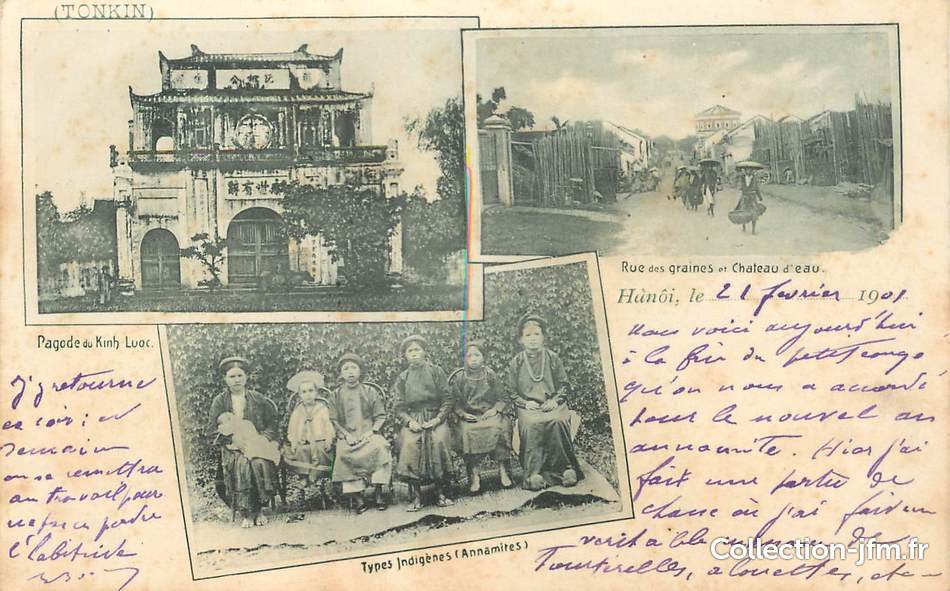 (TONKIN)
Pagode du Kinh-Luoc.
Rue des graines et Chateau d'eau.
Hànôi, le 21 février 1901
Nous voici aujourd'hui
à la fin du petit congé
qu'on nous a accordé
pour le nouvel an
annamite. Hier j'ai
fait une partie de
chasse où j'ai fait un
veritable
Tourterelles, alouettes, etc-
J'y retourne
ce soir; et
Demain
on se remettra
au travail pour
ne pas en perdre
l'habitude
Types Indigènes (Annamites)
Collection-jfm.fr